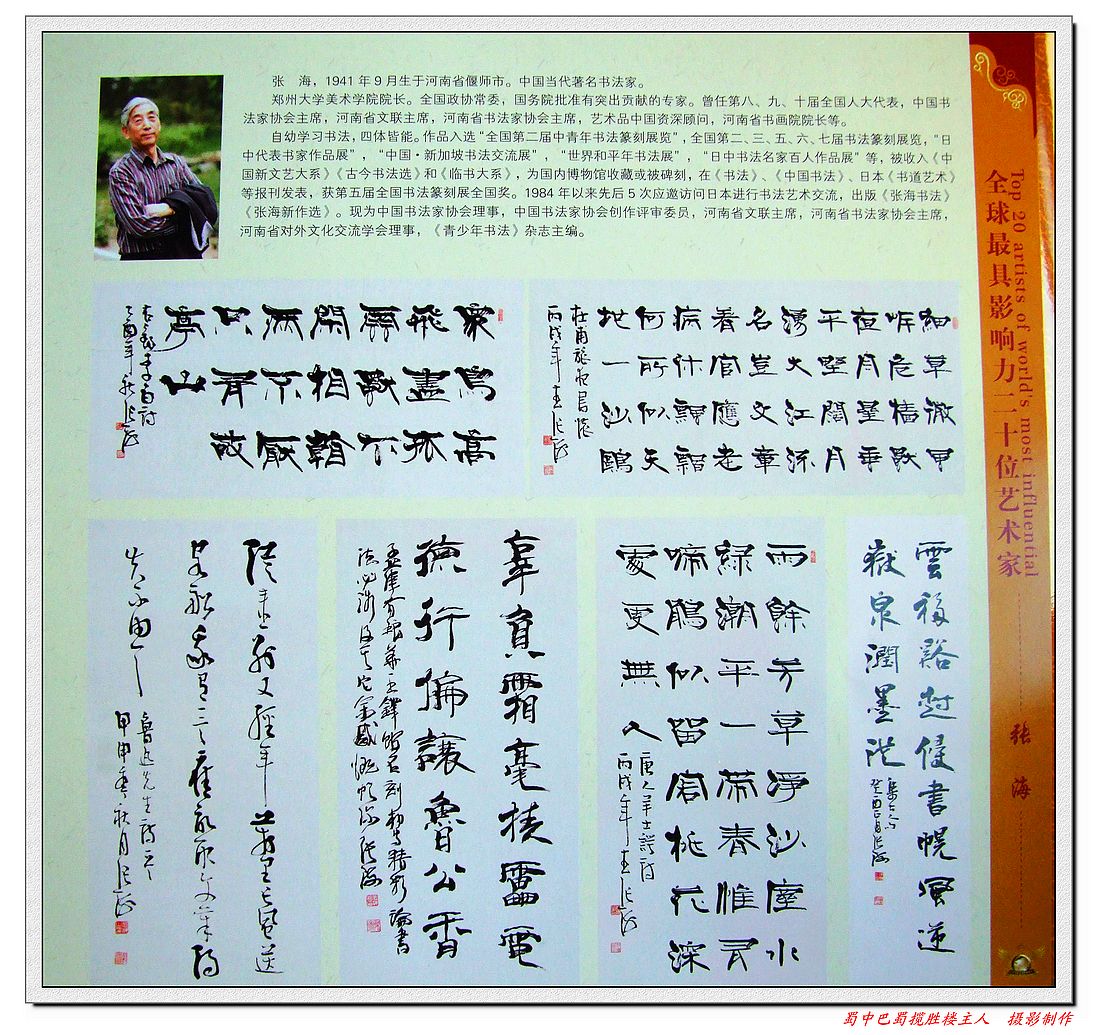 张　海，1941 年 9 月生于河南省偃师市。中国当代著名书法家。
郑州大学美术学院院长。全国政协常委，国务院批准有突出贡献的专家。曾任第八、九、十届全国人大代表，中国书
法家协会主席，河南省文联主席，河南省书法家协会主席，艺术品中国资深顾问，河南省书画院院长等。
自幼学习书法，四体皆能。作品入选“全国第二届中青年书法篆刻展览”，全国第二、三、五、六、七届书法篆刻展览，“日
中代表书家作品展”，“中国·新加坡书法交流展”，“世界和平年书法展”，“日中书法名家百人作品展”等，被收入《中
国新文艺大系》《古今书法选》和《临书大系》，为国内博物馆收藏或被碑刻，在《书法》、《中国书法》、日本《书道艺术》
等报刊发表，获第五届全国书法篆刻展全国奖。1984 年以来先后 5 次应邀访问日本进行书法艺术交流，出版《张海书法》
《张海新作选》。现为中国书法家协会理事，中国书法家协会创作评审委员，河南省文联主席，河南省书法家协会主席，
河南省对外文化交流学会理事，《青少年书法》杂志主编。
Top 20 artists of world's most influential
全球最具影响力二十位艺术家
张　海
眾鳥高
飛盡孤
雲獨去
閑相看
兩不厭
只有敬
亭山
乙酉年秋張海
細草微風
岸危檣獨
夜舟星垂
平野闊月
湧大江流
名豈文章
著官應老
病休飄飄
何所似天
地一沙鷗
杜甫旅夜書懷
丙戌年
從來一別又經年萬里長風送
客船我有一言應記取文章得
失不由天
魯迅先生詩
甲申年秋月張海
辜負霜毫捷雷電
德行偏讓魯公香
雨餘芳草淨沙塵水
綠潮平一帶春惟有
啼鵑似留客桃花深
處更無人
丙戌年
雲移谿樹侵書幌風遞
巖泉潤墨池
蜀中巴蜀揽胜楼主人　摄影制作